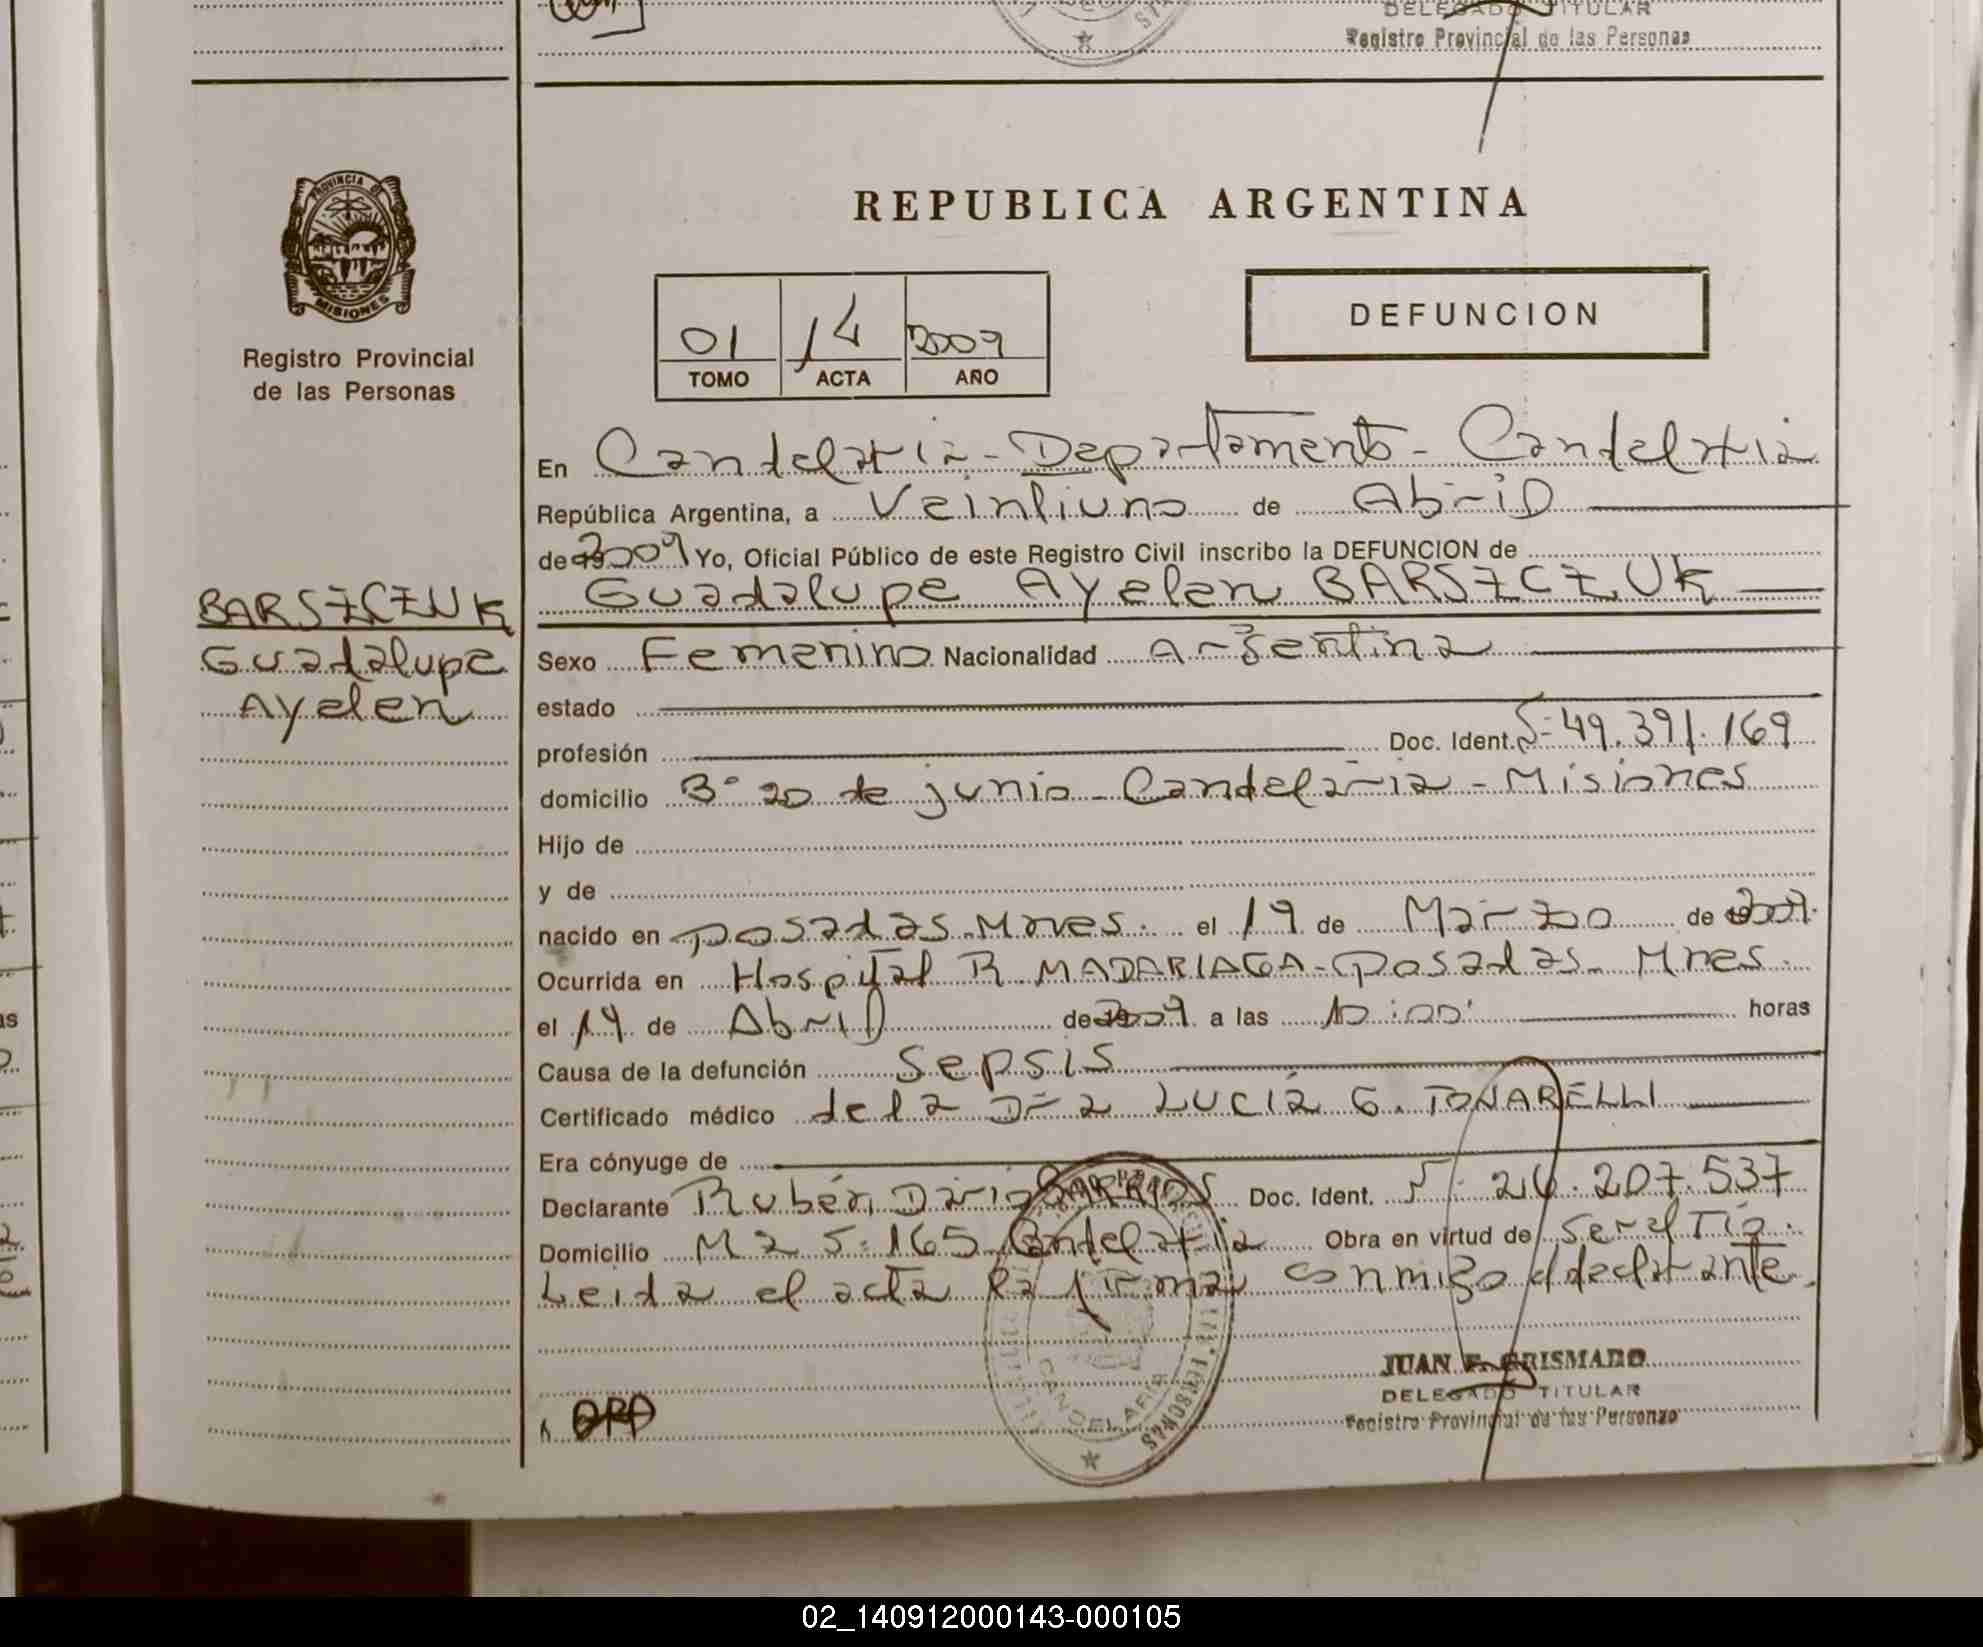 DELEGADO TITULAR
Registro Provincial de las Personas
PROVINCIA DE
MISIONES
Registro Provincial
de las Personas
REPUBLICA ARGENTINA
01 14 2009
TOMO ACTA AÑO
DEFUNCION
En Candelaria - Departamento - Candelaria
República Argentina, a Veintiuno de Abril
de 2009 Yo, Oficial Público de este Registro Civil inscribo la DEFUNCION de
Guadalupe Ayelen BARSZCZUK
BARSZCZUK
Guadalupe
Ayelen
Sexo Femenino Nacionalidad Argentina
estado
profesión Doc. Ident. 49.391.169
domicilio Bº 20 de junio - Candelaria - Misiones
Hijo de
y de
nacido en Posadas. Mnes. el 19 de Marzo de 2009.
Ocurrida en Hospital R. MADARIAGA - Posadas. Mnes.
el 19 de Abril de 2009. a las 10:00' horas
Causa de la defunción Sepsis
Certificado médico de la Dra LUCIA G. TONARELLI
Era cónyuge de
Declarante Rubén Dario BARRIOS Doc. Ident. 26.207.537
Domicilio Mz 5. 165 Candelaria Obra en virtud de Ser el Tío.
Leida el acta la firma conmigo el declarante.
CANDELARIA
JUAN F. GRISMADO
DELEGADO TITULAR
Registro Provincial de las Personas
02_140912000143-000105